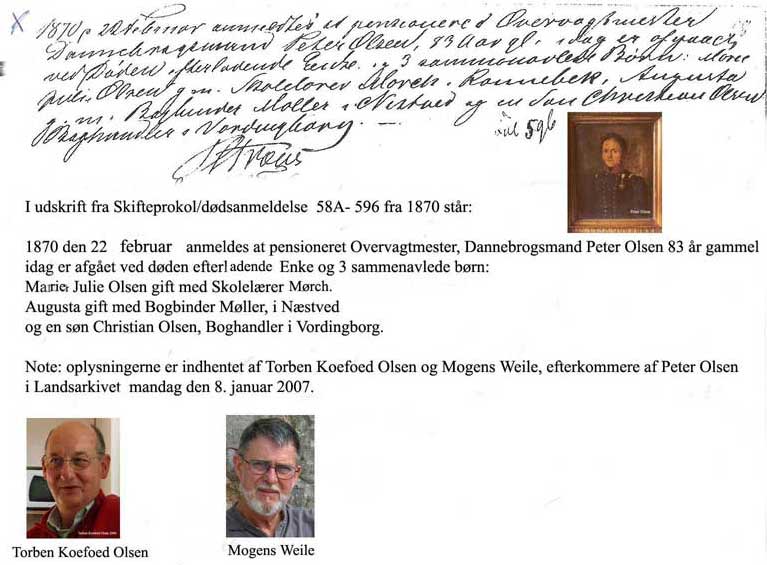 X
1870 22 Februar anmeldtes at pensioneret Overvagtmester
Dannebrogsmand Peter Olsen, 83 Aar gl. idag er afgaaet
ved Døden efterladende Enke og 3 sammenavlede Børn: Marie
Julie Olsen g. m. Skolelærer Mørch i Rønnebek, Augusta
g. m. Bogbinder Møller i Nestved og en Søn Christian Olsen
Boghandler i Vordingborg.
596
Peter Olsen
I udskrift fra Skifteprokol/dødsanmeldelse 58A- 596 fra 1870 står:
1870 den 22 februar anmeldes at pensioneret Overvagtmester, Dannebrogsmand Peter Olsen 83 år gammel
idag er afgået ved døden efterladende Enke og 3 sammenavlede børn:
Marie, Julie Olsen gift med Skolelærer Mørch.
Augusta gift med Bogbinder Møller, i Næstved
og en søn Christian Olsen, Boghandler i Vordingborg.
Note: oplysningerne er indhentet af Torben Koefoed Olsen og Mogens Weile, efterkommere af Peter Olsen
i Landsarkivet mandag den 8. januar 2007.
Torben Koefoed Olsen
Mogens Weile